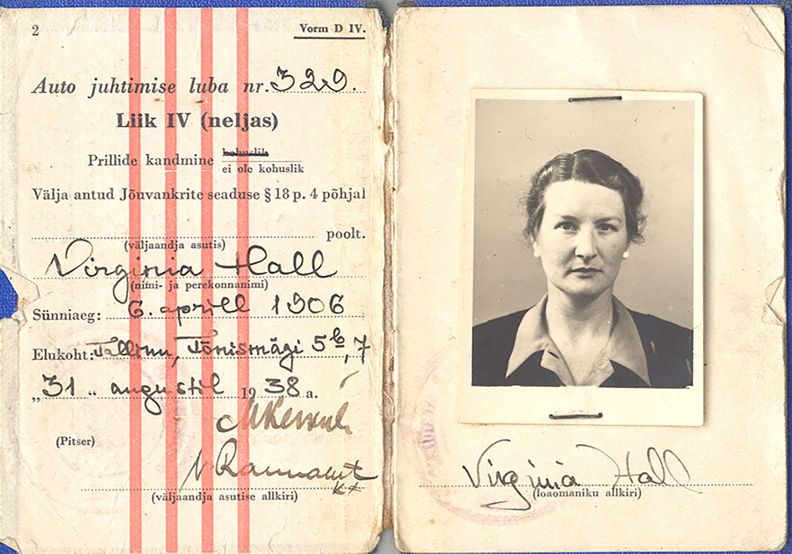 2
Vorm D IV.
Auto juhtimise luba nr. 329.
Liik IV (neljas)
Prillide kandmine kohuslik
ei ole kohuslik
Välja antud Jõuvankrite seaduse § 18 p. 4 põhjal
poolt.
(väljaandja asutis)
Virginia Hall
(nimi- ja perekonnanimi)
Sünniaeg: 6. aprill 1906
Elukoht: Tallinn, Tõnismägi 5b, 7
„31" augustil 1938 a.
(Pitser)
(väljaandja asutise allkiri)
Virginia Hall
(loaomaniku allkiri)